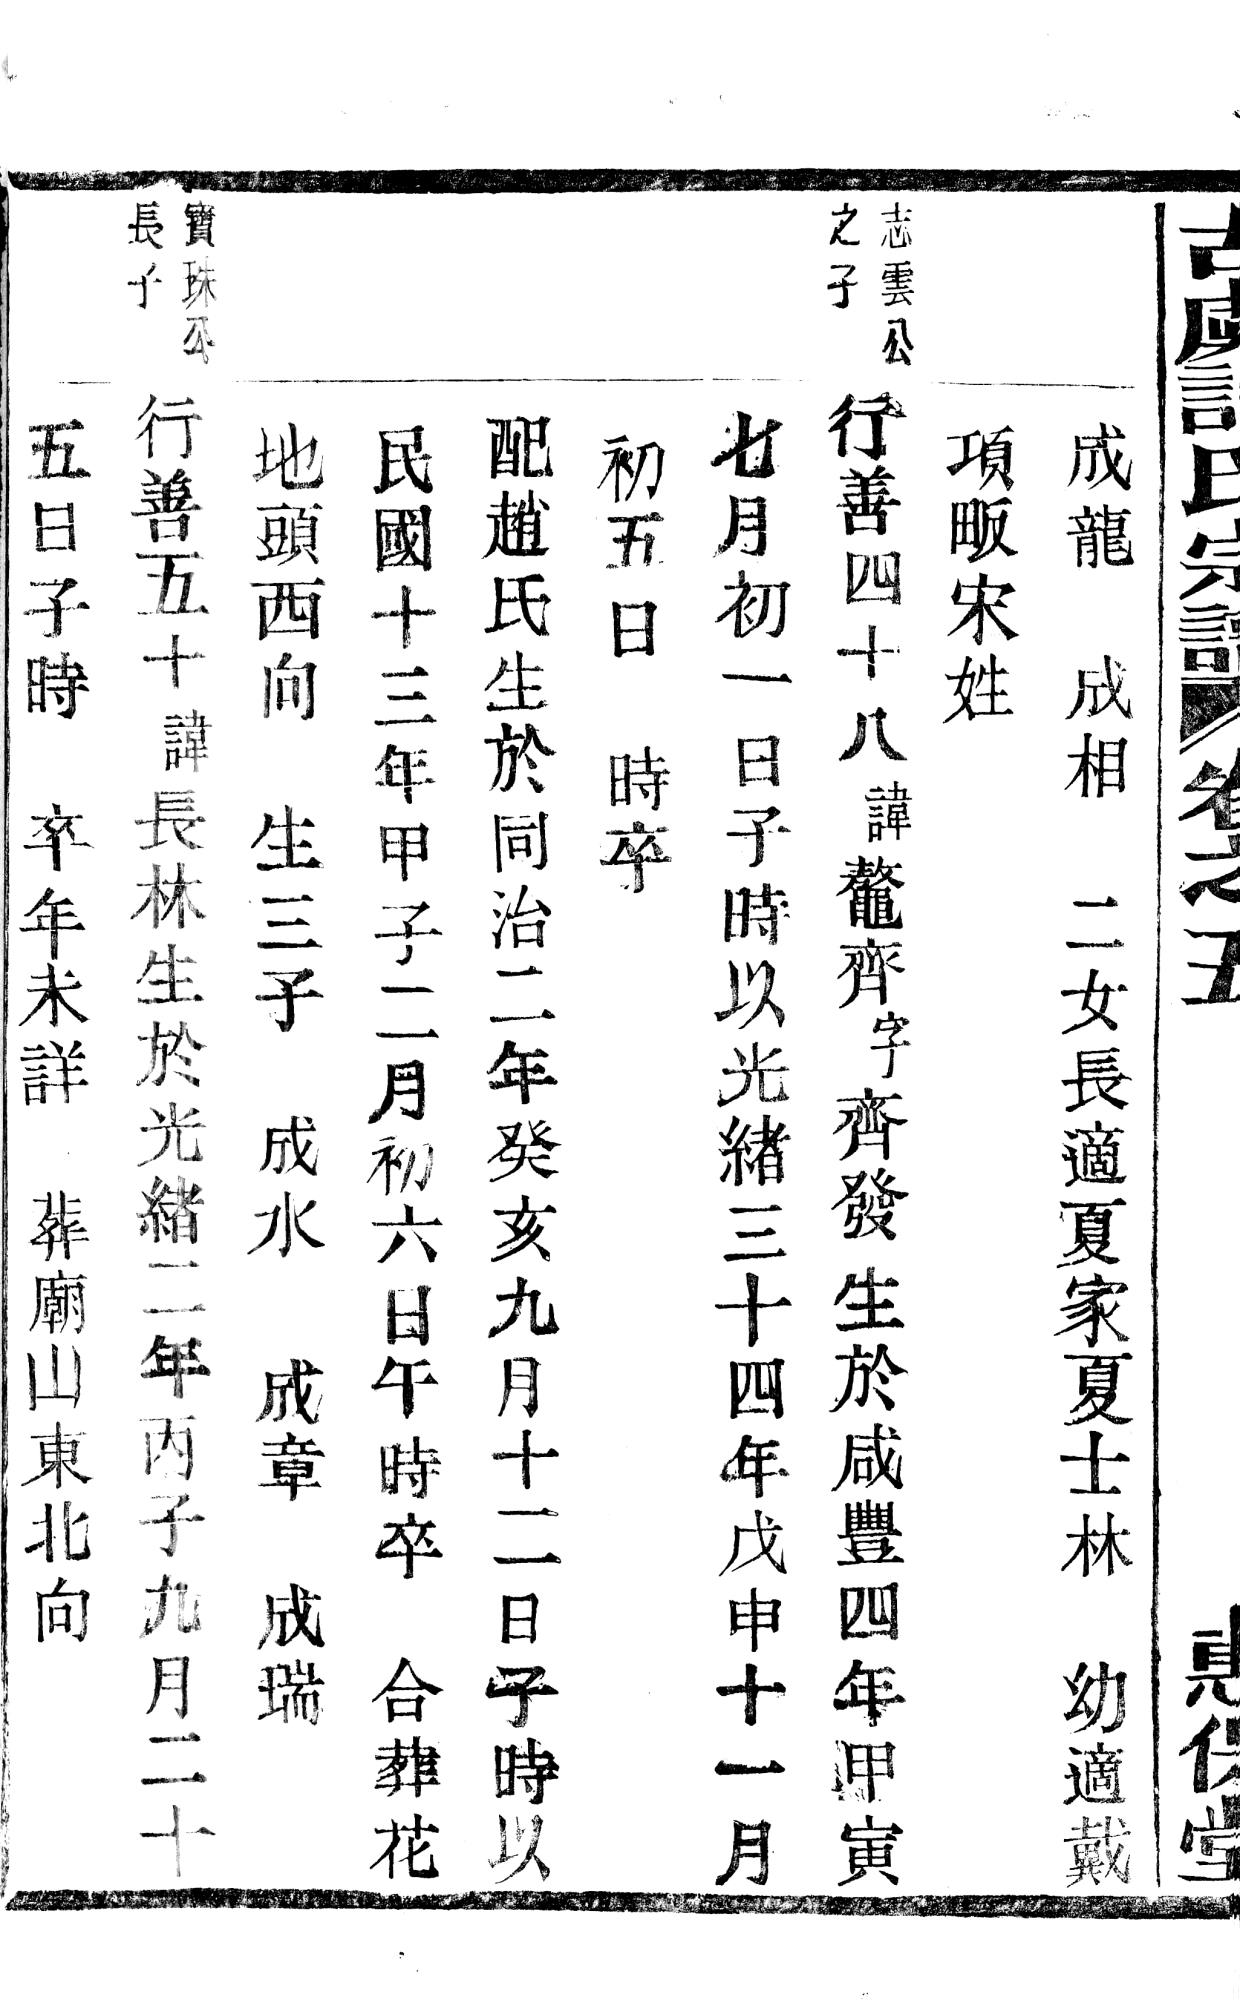 古虞許氏宗譜 卷之五 惠保堂
成龍 成相 二女長適夏家夏士林 幼適戴
項畈宋姓
志雲公
之子
行善四十八諱鼇齊字齊發生於咸豐四年甲寅
七月初一日子時以光緒三十四年戊申十一月
初五日 時卒
配趙氏生於同治二年癸亥九月十二日子時以
民國十三年甲子二月初六日午時卒 合葬花
地頭西向 生三子 成水 成章 成瑞
寶珠公
長子
行善五十諱長林生於光緒二年丙子九月二十
五日子時 卒年未詳 葬廟山東北向